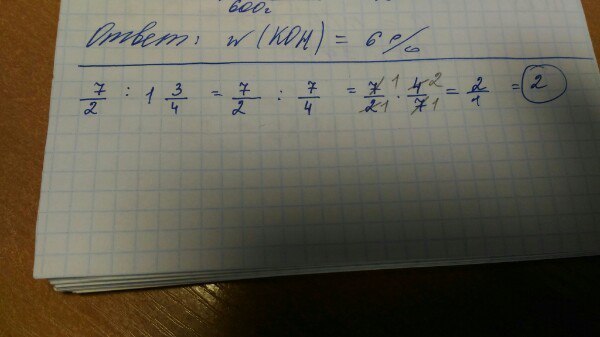 600г
Ответ: w (KOH) = 6 %
7/2 : 1 3/4 = 7/2 : 7/4 = 7 1/2 1 · 4 2/7 1 = 2/1 = 2